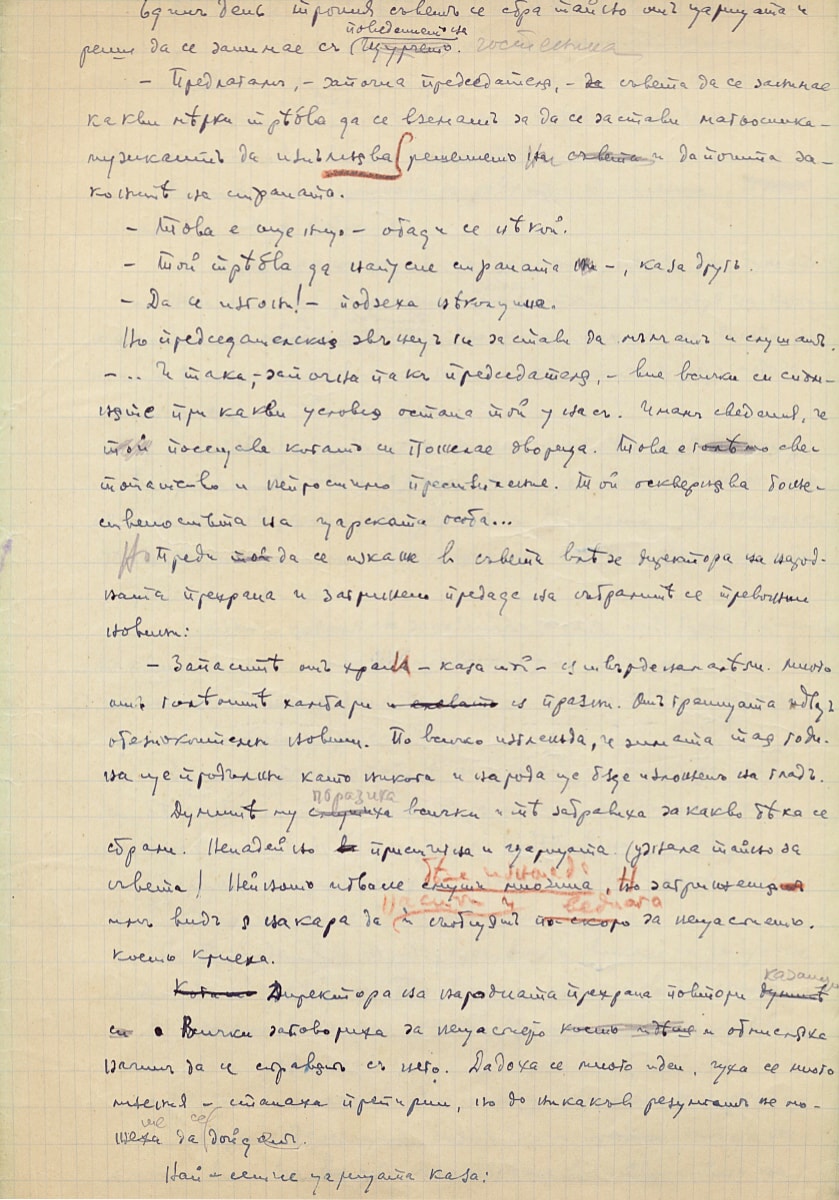 Единъ день тройния съветъ се събра тайно отъ царицата и
поведението на
реши да се занимае съ Щурчето. гостенина
– Предлагамъ, – започна председателя, – да съвета да се занимае
какви мѣрки трѣбва да се взематъ за да се застави магьосника-
музикантъ да изпълнява решението на съвета и да почита за-
конитѣ на страната.
– Това е още нищо – обади се нѣкой.
– Той трѣбва да напусне страната –, каза другъ.
– Да се изгони! – подзеха нѣколцина.
Но председателския звънецъ ги застави да млъкнатъ и слушатъ.
– .. И така, – започна пакъ председателя, – вие всички си спом-
няте при какви условия остана той у насъ. Имамъ сведения, че
той посещава когато си пожелае двореца. Това е голѣмо све-
тотатство и непростимо престъпление. Той осквернява боже-
ствеността на царската особа...
Но Преди той да се изкаже в съвета влѣзе директора на народ-
ната прехрана и загрижено предаде на събранитѣ се тревожни
новини:
– Запаситѣ отъ храни – каза той – са твърде намалѣли. Много
отъ голѣмитѣ хамбари са празни. Отъ границата идвуъ
обезпокоителни новини. По всичко изглежда, че зимата тая годи-
на ще продължи както никога и народа ще бъде изложенъ на гладъ.
поразиха
Думитѣ му слушаха всички и тѣ забравиха за какво бѣха се
събрали. Ненадейно в пристигна и царицата (узнала тайно за
бѣ изненада
съвета! Нейното идване смути мнозина, но загрижения
на сички веднага
имъ видъ я накара да съобщятъ по скоро за нещастието,
което криеха.
казаното
Когато Директора на народната прехрана повтори думитѣ
си. Всички заговориха за нещастието което идѣше и обмисляха
начинъ да се справятъ съ него. Дадоха се много идеи, чуха се много
мнения – станаха препирни, но до никакъв резултатъ не мо-
же се
жеха да дойдатъ.
Най – сетне царицата каза: